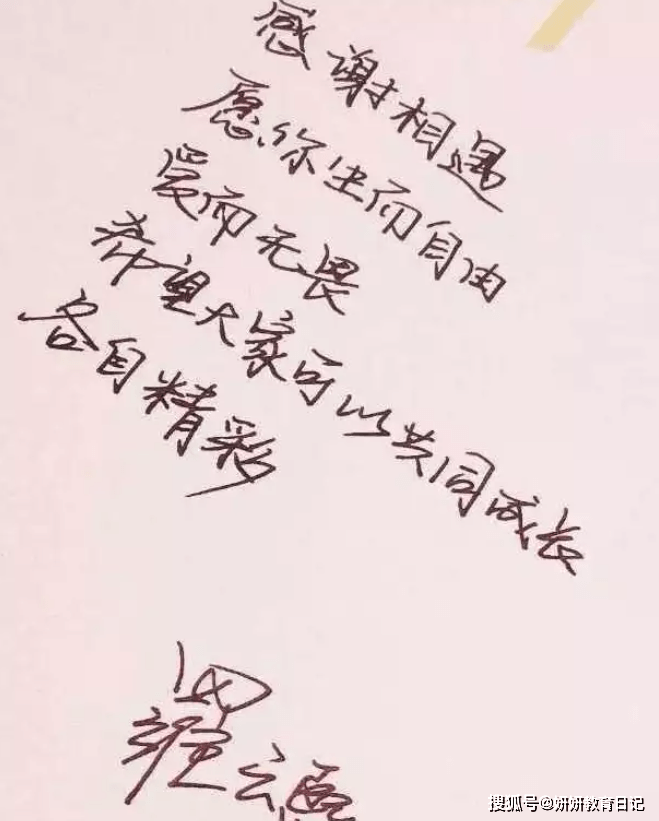 感谢相遇
愿你生而自由
爱而无畏
希望大家可以共同成长
各自精彩
罗云熙
搜狐号@妍妍教育日记